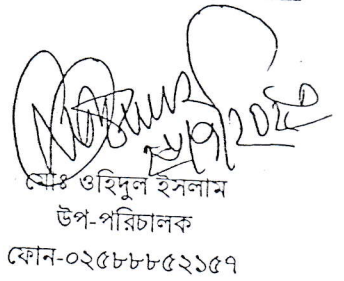 মোঃ ওহিদুল ইসলাম
উপ-পরিচালক
ফোন-০২৫৮৮৮৫২১৫৭